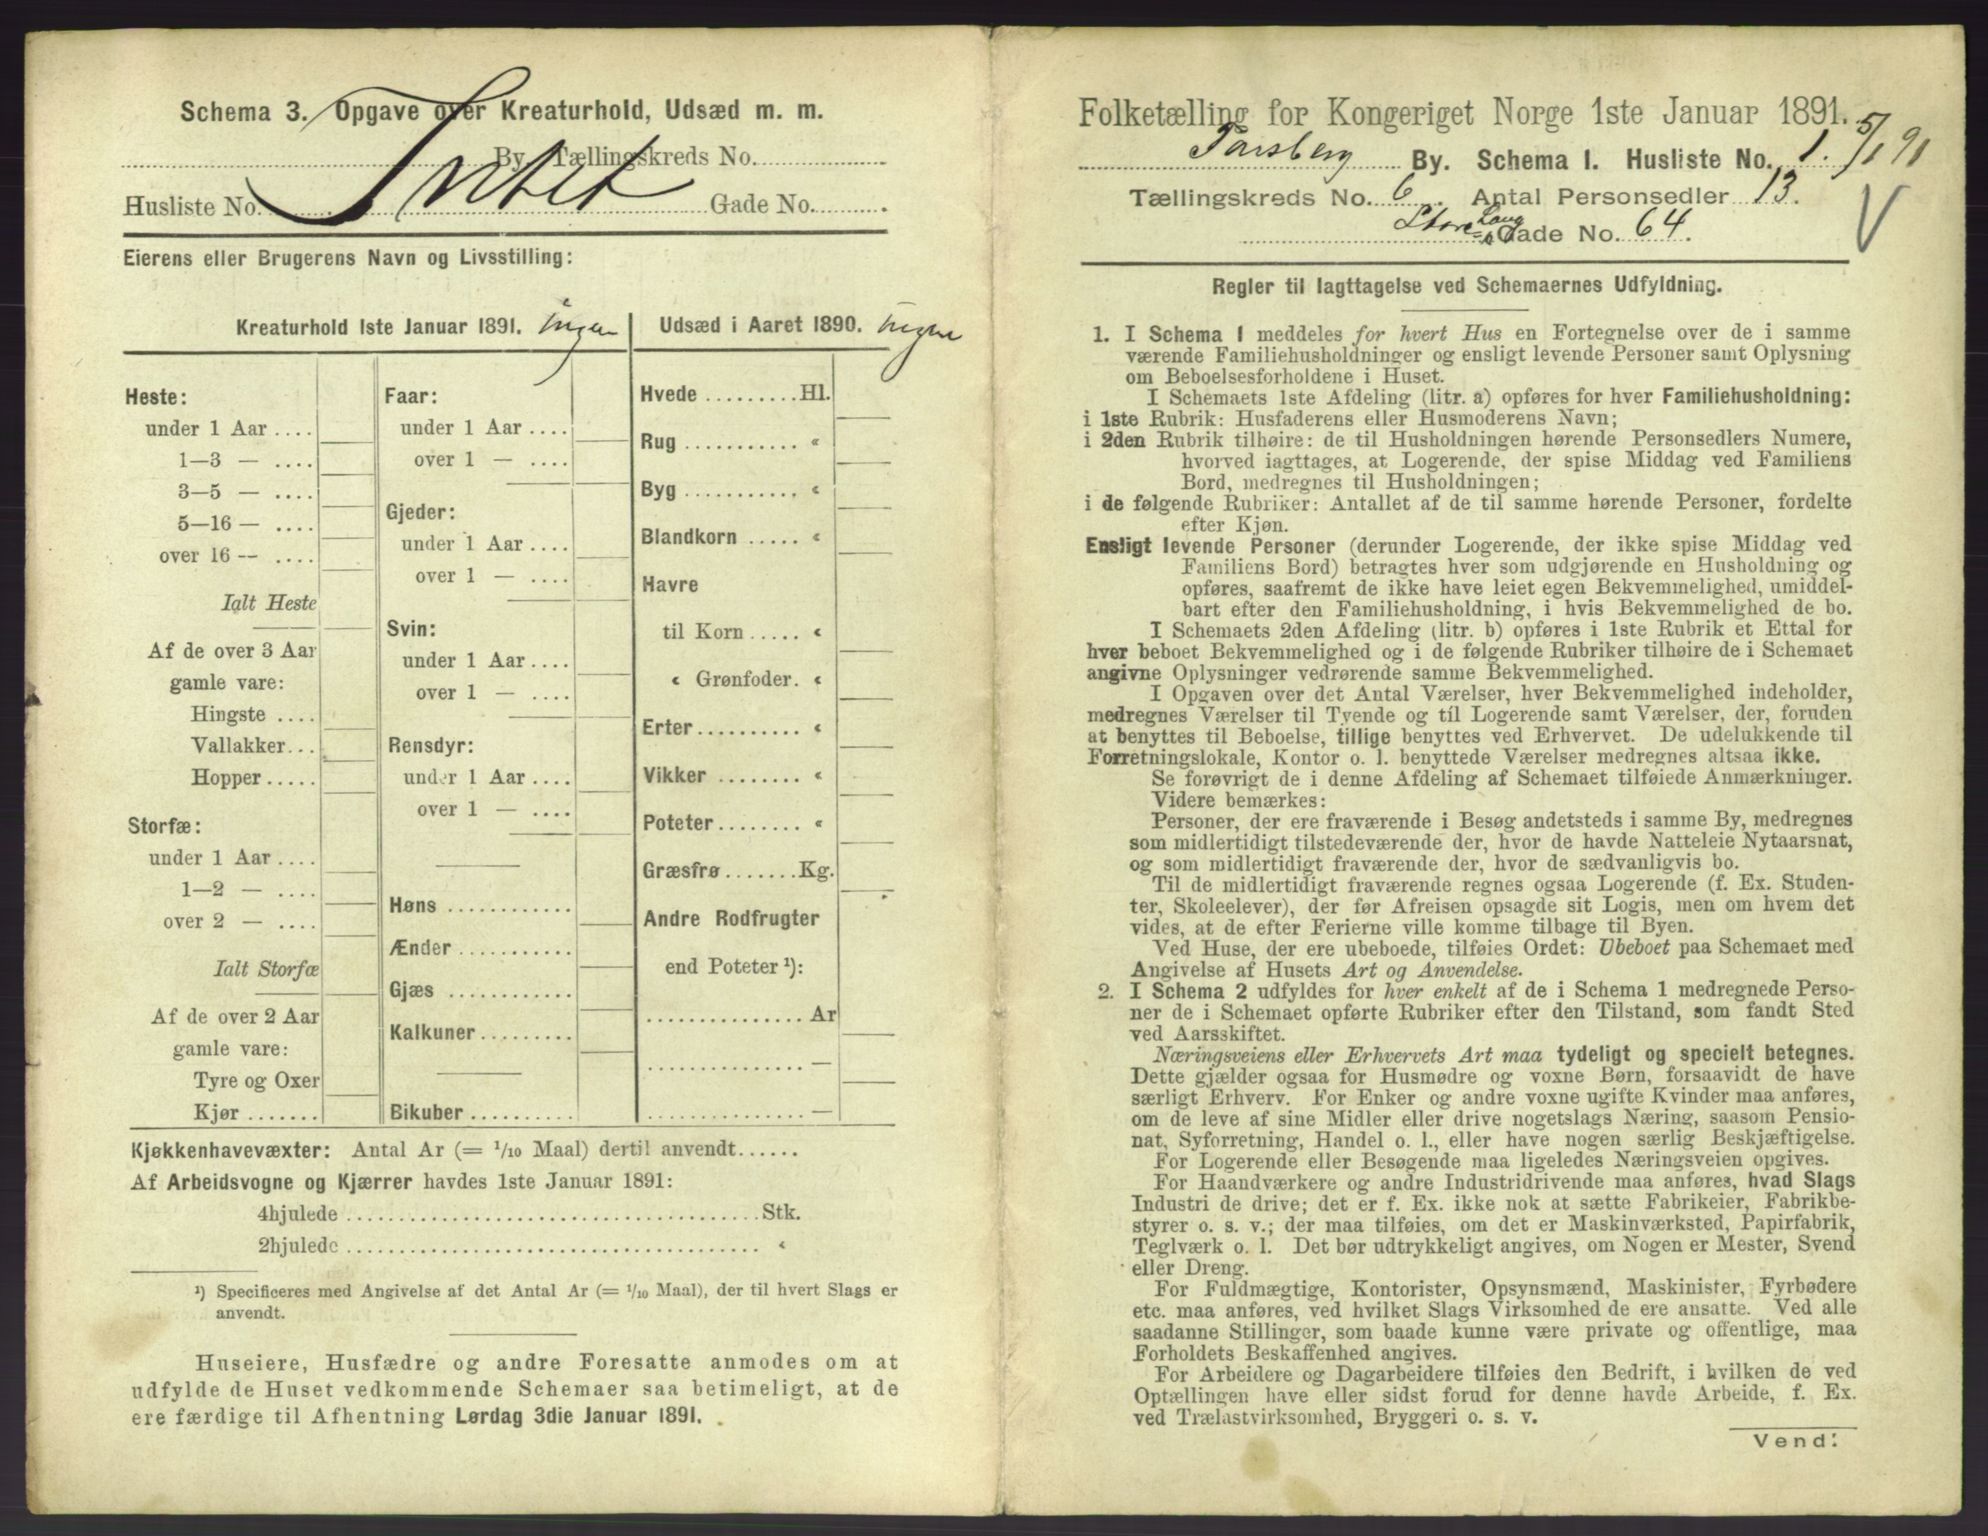 Schema 3. Opgave over Kreaturhold, Udsæd m. m.
By. Tællingskreds No.
Intet
Husliste No. Gade No.
Eierens eller Brugerens Navn og Livsstilling:
Kreaturhold 1ste Januar 1891. Ingen
Heste:
under 1 Aar
1—3 —
3—5 —
5—16 —
over 16 —
Ialt Heste
Af de over 3 Aar
gamle vare:
Hingste
Vallakker
Hopper
Storfæ:
under 1 Aar
1—2 —
over 2 —
Ialt Storfæ
Af de over 2 Aar
gamle vare:
Tyre og Oxer
Kjør
Faar:
under 1 Aar
over 1 —
Gjeder:
under 1 Aar
over 1 —
Svin:
under 1 Aar
over 1 —
Rensdyr:
under 1 Aar
over 1 —
Høns
Ænder
Gjæs
Kalkuner
Bikuber
Udsæd i Aaret 1890. Ingen
Hvede Hl.
Rug «
Byg «
Blandkorn «
Havre
til Korn «
« Grønfoder. «
Erter «
Vikker «
Poteter «
Græsfrø Kg.
Andre Rodfrugter
end Poteter ¹):
Ar
—
—
Kjøkkenhavevæxter: Antal Ar (= 1/10 Maal) dertil anvendt
Af Arbeidsvogne og Kjærrer havdes 1ste Januar 1891:
4hjulede Stk.
2hjulede «
¹) Specificeres med Angivelse af det Antal Ar (= 1/10 Maal), der til hvert Slags er
anvendt.
Huseiere, Husfædre og andre Foresatte anmodes om at
udfylde de Huset vedkommende Schemaer saa betimeligt, at de
ere færdige til Afhentning Lørdag 3die Januar 1891.
Folketælling for Kongeriget Norge 1ste Januar 1891.
5/1 91
Tønsberg By. Schema I. Husliste No. 1.
Tællingskreds No. 6. Antal Personsedler 13.
Store Lang Gade No. 64.
Regler til Iagttagelse ved Schemaernes Udfyldning.
1. I Schema 1 meddeles for hvert Hus en Fortegnelse over de i samme
værende Familiehusholdninger og ensligt levende Personer samt Oplysning
om Beboelsesforholdene i Huset.
I Schemaets 1ste Afdeling (litr. a) opføres for hver Familiehusholdning:
i 1ste Rubrik: Husfaderens eller Husmoderens Navn;
i 2den Rubrik tilhøire: de til Husholdningen hørende Personsedlers Numere,
hvorved iagttages, at Logerende, der spise Middag ved Familiens
Bord, medregnes til Husholdningen;
i de følgende Rubriker: Antallet af de til samme hørende Personer, fordelte
efter Kjøn.
Ensligt levende Personer (derunder Logerende, der ikke spise Middag ved
Familiens Bord) betragtes hver som udgjørende en Husholdning og
opføres, saafremt de ikke have leiet egen Bekvemmelighed, umiddel-
bart efter den Familiehusholdning, i hvis Bekvemmelighed de bo.
I Schemaets 2den Afdeling (litr. b) opføres i 1ste Rubrik et Ettal for
hver beboet Bekvemmelighed og i de følgende Rubriker tilhøire de i Schemaet
angivne Oplysninger vedrørende samme Bekvemmelighed.
I Opgaven over det Antal Værelser, hver Bekvemmelighed indeholder,
medregnes Værelser til Tyende og til Logerende samt Værelser, der, foruden
at benyttes til Beboelse, tillige benyttes ved Erhvervet. De udelukkende til
Forretningslokale, Kontor o. l. benyttede Værelser medregnes altsaa ikke.
Se forøvrigt de i denne Afdeling af Schemaet tilføiede Anmærkninger.
Videre bemærkes:
Personer, der ere fraværende i Besøg andetsteds i samme By, medregnes
som midlertidigt tilstedeværende der, hvor de havde Natteleie Nytaarsnat,
og som midlertidigt fraværende der, hvor de sædvanligvis bo.
Til de midlertidigt fraværende regnes ogsaa Logerende (f. Ex. Studen-
ter, Skoleelever), der før Afreisen opsagde sit Logis, men om hvem det
vides, at de efter Ferierne ville komme tilbage til Byen.
Ved Huse, der ere ubeboede, tilføies Ordet: Ubeboet paa Schemaet med
Angivelse af Husets Art og Anvendelse.
2. I Schema 2 udfyldes for hver enkelt af de i Schema 1 medregnede Perso-
ner de i Schemaet opførte Rubriker efter den Tilstand, som fandt Sted
ved Aarsskiftet.
Næringsveiens eller Erhvervets Art maa tydeligt og specielt betegnes.
Dette gjælder ogsaa for Husmødre og voxne Børn, forsaavidt de have
særligt Erhverv. For Enker og andre voxne ugifte Kvinder maa anføres,
om de leve af sine Midler eller drive nogetslags Næring, saasom Pensio-
nat, Syforretning, Handel o. l., eller have nogen særlig Beskjæftigelse.
For Logerende eller Besøgende maa ligeledes Næringsveien opgives.
For Haandværkere og andre Industridrivende maa anføres, hvad Slags
Industri de drive; det er f. Ex. ikke nok at sætte Fabrikeier, Fabrikbe-
styrer o. s. v.; der maa tilføies, om det er Maskinværksted, Papirfabrik,
Teglværk o. l. Det bør udtrykkeligt angives, om Nogen er Mester, Svend
eller Dreng.
For Fuldmægtige, Kontorister, Opsynsmænd, Maskinister, Fyrbødere
etc. maa anføres, ved hvilket Slags Virksomhed de ere ansatte. Ved alle
saadanne Stillinger, som baade kunne være private og offentlige, maa
Forholdets Beskaffenhed angives.
For Arbeidere og Dagarbeidere tilføies den Bedrift, i hvilken de ved
Optællingen have eller sidst forud for denne havde Arbeide, f. Ex.
ved Trælastvirksomhed, Bryggeri o. s. v.
Vend!